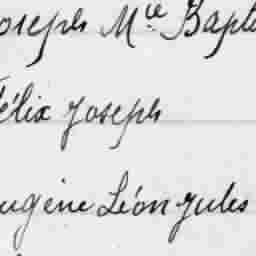 Joseph Mce Bapt
Félix Joseph
Eugène Léon Jules